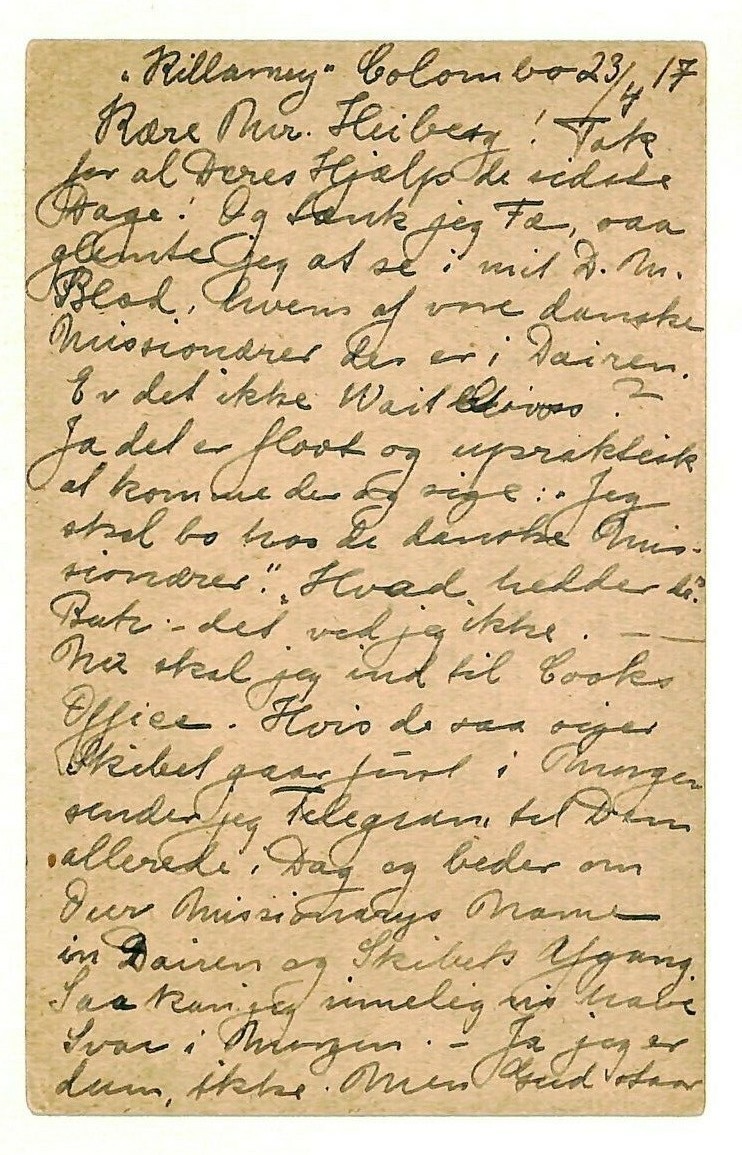 "Killarney" Colombo 23/4 17
Kære Mr. Heiberg! Tak
for al Deres Hjælp de sidste
Dage! Og tænk jeg Fæ, saa
glemte jeg at se i mit D. M.
Blad, hvem af vore danske
Missionærer der er i Dairen.
Er det ikke
Ja det er flovt og upraktisk
at komme der og sige: "Jeg
skal bo hos de danske Mis-
sionærer". "Hvad hedder de?"
- det ved jeg ikke. —
Nu skal jeg ind til Cooks
Office. Hvis de saa siger
Skibet gaar først i Morgen
sender jeg Telegram til Dem
allerede i Dag og beder om
Our Missionarys Name
in Dairen og Skibets Afgang
Saa kan jeg rimeligvis have
Svar i Morgen. - Ja jeg er
dum, ikke. Men Gud staar